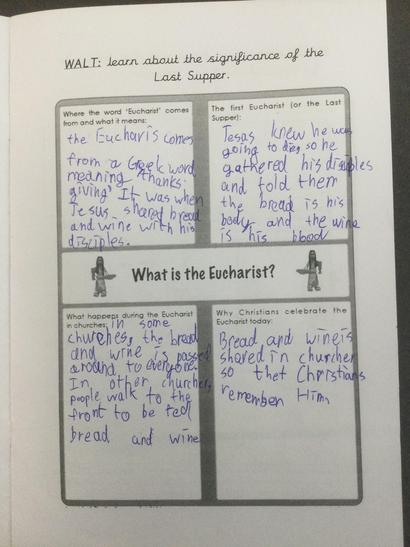 WALT: learn about the significance of the
Last Supper.
Where the word 'Eucharist' comes
from and what it means:
the Eucharis comes
from a Greek word
meaning 'thanks
giving' It was when
Jesus shared bread
and wine with his
disciples.
The first Eucharist (or the Last
Supper):
Jesas knew he was
going to die, so he
gathered his disiples
and told them
the bread is his
body and the wine
is his blood
What is the Eucharist?
What happens during the Eucharist
in churches: in some
churches, the bread
and wine is passed
around to everyone.
In other churches
people walk to the
front to be fed
bread and wine
Why Christians celebrate the
Eucharist today:
Bread and wine is
shared in churches
so thet Christians
remember Him